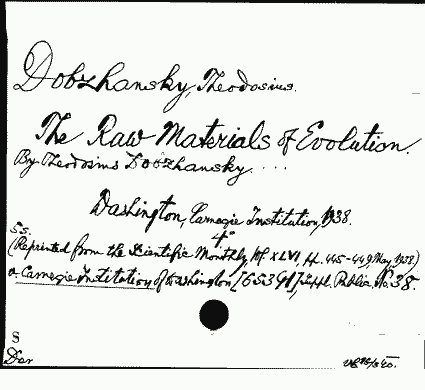 Dobzhansky, Theodosius.
The Raw Materials of Evolution.
By Theodosius Dobzhansky....
Washington, Carnegie Institution, 1938.
4°
SS.
(Reprinted from the Scientific Monthly, Vol XLVI, pp. 445-449, May, 1938.)
a. Carnegie Institution of Washington [6539d], Suppl. Public. No 38.
S